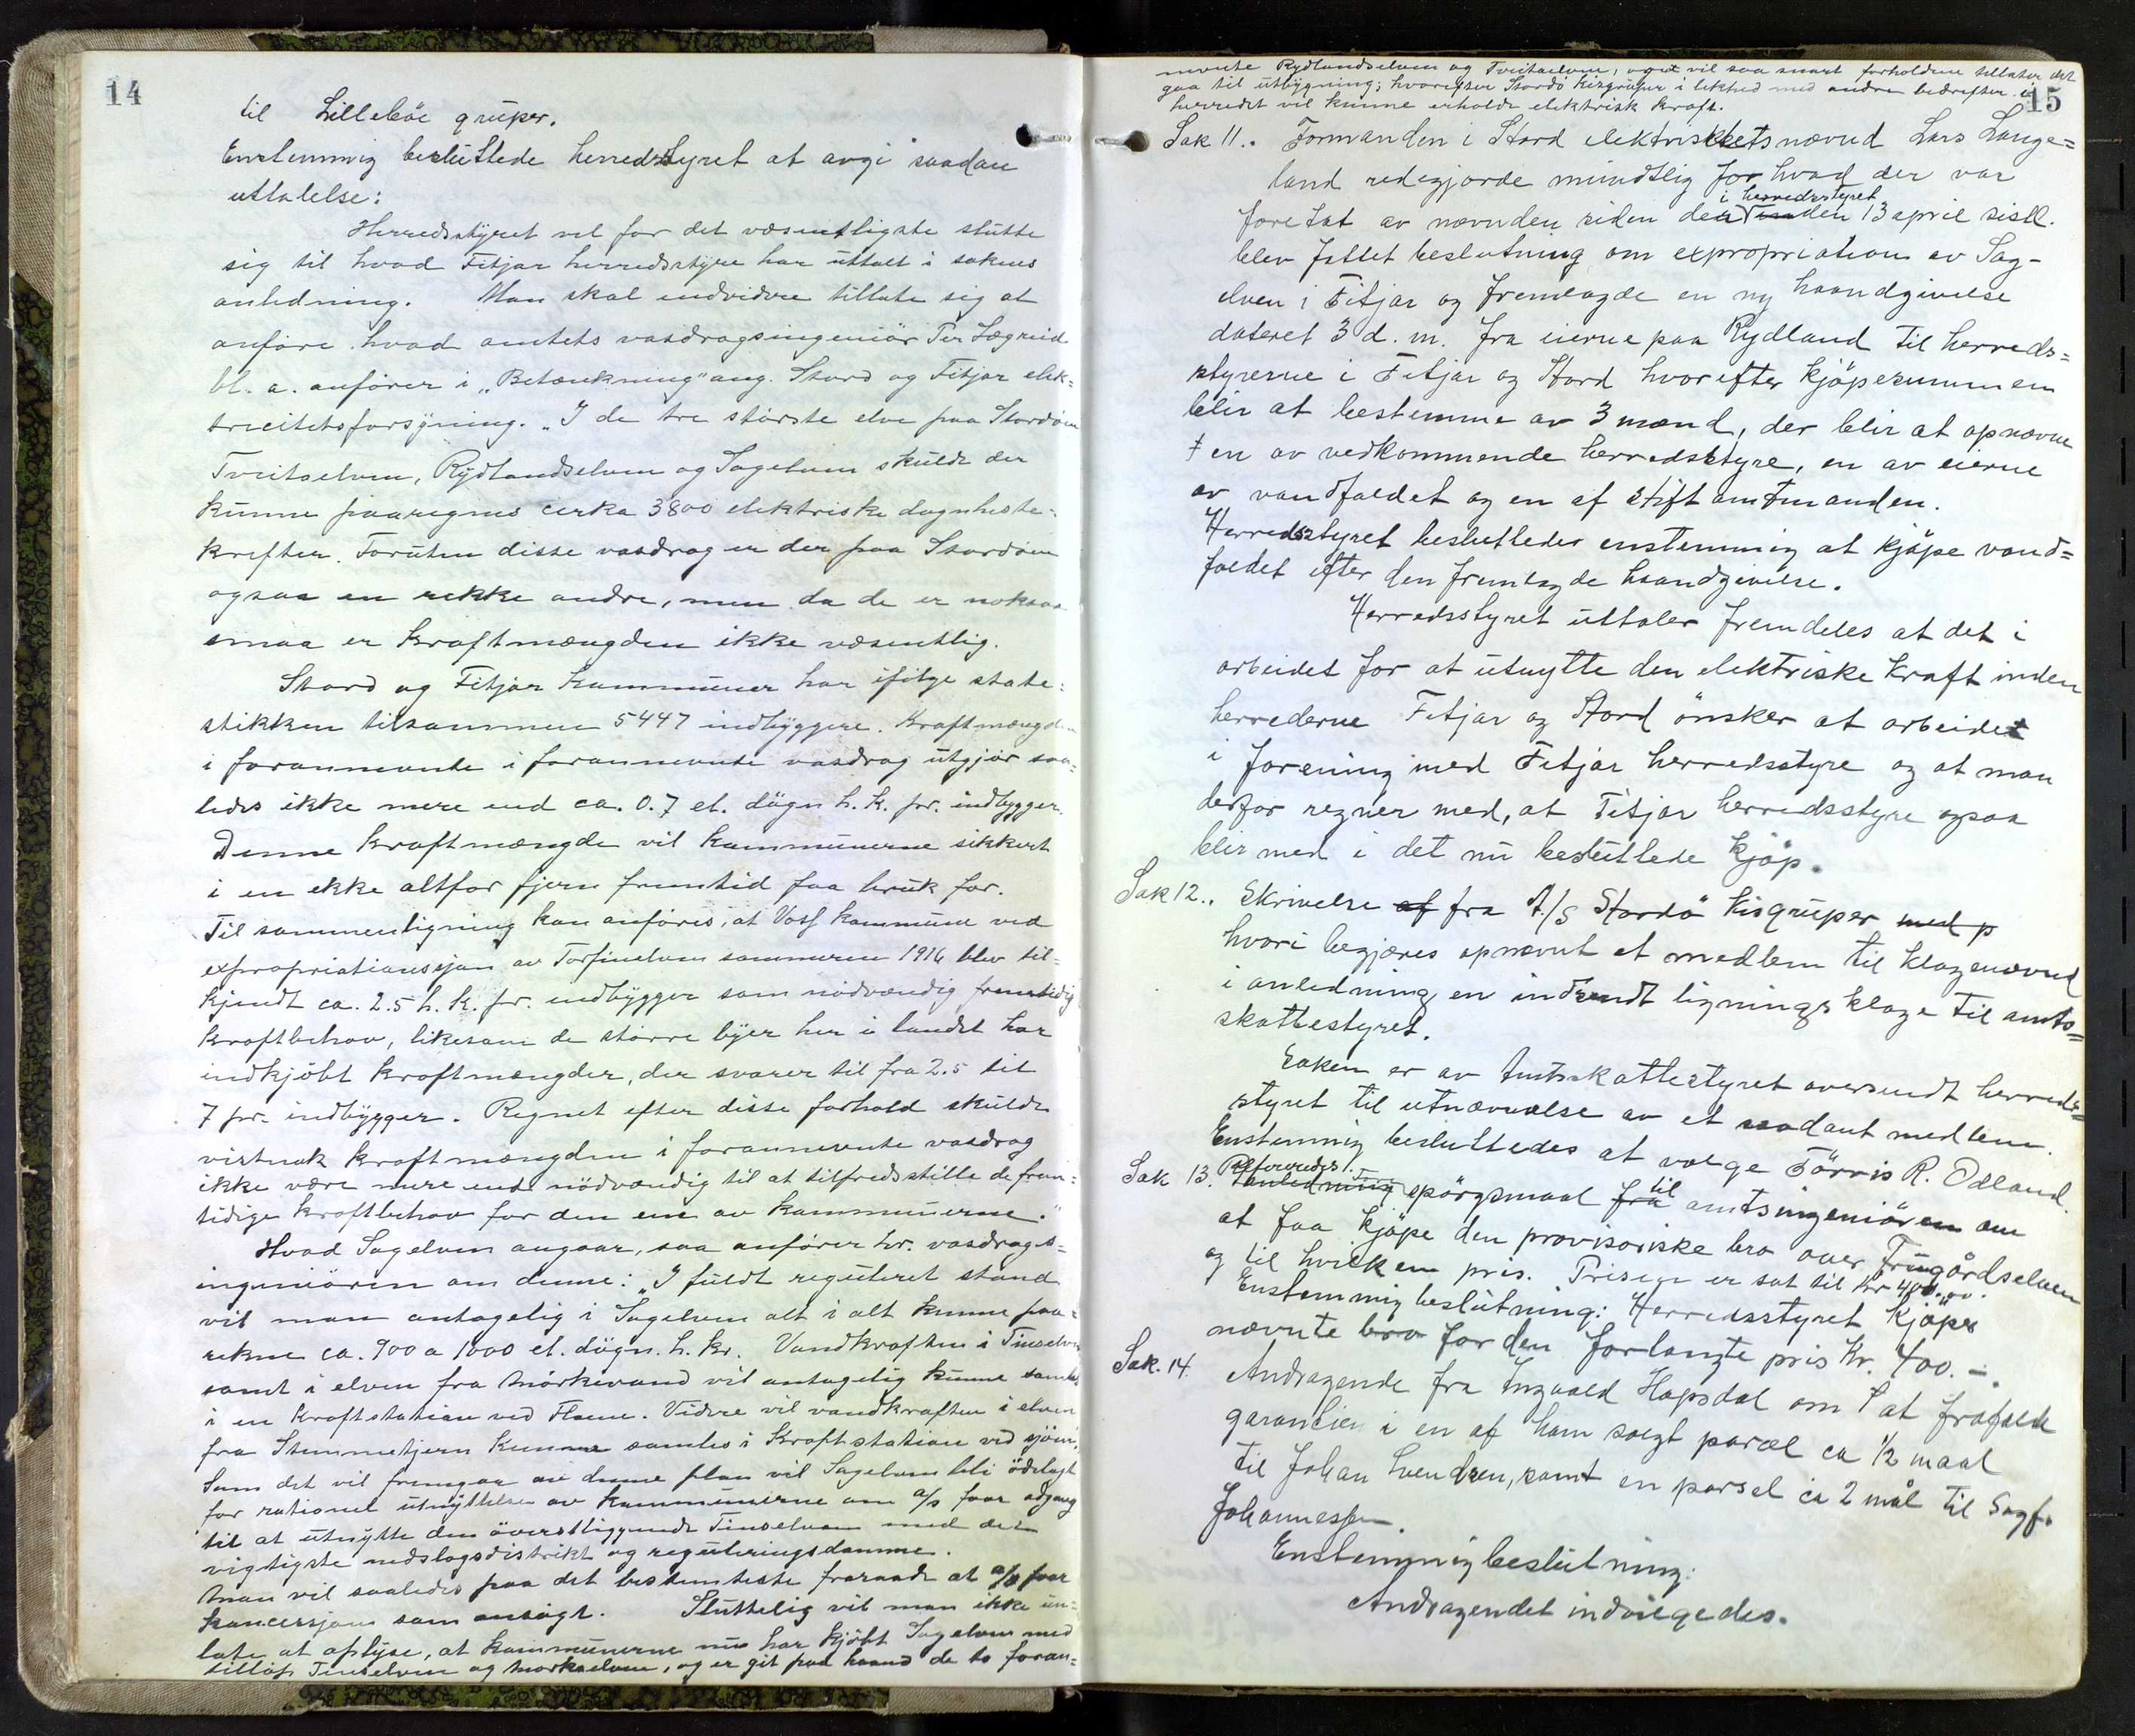 14
til Lillebøe gruper.
Enstemmig besluttede herredsstyret at avgi saadan
uttalelse:
Herredsstyret vil for det væsentligste slutte
sig til hvad Fitjar herredsstyre har uttalt i sakens
anledning. Man skal endvidere tillate sig at
anføre hvad amtets vasdragsingeniør Per Lægreid
bl. a. anfører i „Betænkning" ang. Stord og Fitjar elek=
tricitetsforsyning. „I de tre største elve paa Stordøen
Tveitaelven, Rydlandselven og Sagelven skulde der
kunne paaregnes cirka 3800 elektriske døgnheste=
krefter. Foruten disse vasdrag er der paa Stordøen
ogsaa en rekke andre, men da de er noksaa
smaa er kraftmængden ikke væsentlig.
Stord og Fitjar kommuner har ifølge stati=
stikken tilsammen 5447 indbyggere. Kraftmængden
i forannevnte i forannevnte vasdrag utgjør saa=
ledes ikke mere end ca. 0.7 el. døgn h. k. pr. indbygger.
Denne kraftmængde vil kommunerne sikkert
i en ikke altfor fjern fremtid faa bruk for.
Til sammenligning kan anføres, at Voss kommune ved
expropriationssjøn av Torfinelven sommeren 1916 blev til=
kjendt ca. 2.5 h. k. pr. indbygger som nødvendig fremtidig
kraftbehov, likesom de større byer her i landet har
indkjøbt kraftmengder, der svarer til fra 2.5 til
7 pr. indbygger. Regnet efter disse forhold skulde
vistnok kraftmængden i forannevnte vasdrag
ikke være mere end nødvendig til at tilfredsstille de frem=
tidige kraftbehov for den ene av kommunerne."
Hvad Sagelven angaar, saa anfører hr. vasdrags=
ingeniøren om denne: „I fuldt reguleret stand
vil man antagelig i Sagelven alt i alt kunne paa=
rekne ca. 900 a 1000 el. døgn. h. kr. Vandkraften i Tinselven
samt i elven fra Mørkevand vil antagelig kunne samles
i en kraftstation ved Videre vil vandkraften i elven
fra Stemmetjern kunne samles i kraftstation ved sjøen.
Som det vil fremgaa av denne plan vil Sagelven bli ødelagt
for rationel utnyttelse av kommunerne om a/s faar adgang
til at utnytte den øverstliggende Tinselven med det
vigtigste nedslagsdistrikt og reguleringsdamme.
Man vil saaledes paa det bestemteste fraraade at a/s faar
koncessjon som ansøgt. Sluttelig vil man ikke un=
late at oplyse, at kommunerne nu har kjøbt Sagelven med
tilløp Tinselven og Mørkaelven, og er git paa haand de to foran=
15
nevnte Rydlandselven og Tveitaelven, og vil saa snart forholdene tillater det
gaa til utbygning; hvorefter Stordø Kisgruper i likhed med andre bedrifter i
herredet vil kunne erholde elektrisk kraft.
Sak 11. Formanden i Stord elektrisitetsnævnd Lars Lange=
land redegjorde mundtlig for hvad der var
i herredsstyret
foretat av nævnden siden den 13 april sistl.
blev fattet beslutning om expropriation av Sag-
elven i Fitjar og fremlagde en ny haandgivelse
dateret 3 d. m. fra eierne paa Rydland til herreds=
styrerne i Fitjar og Stord hvorefter kjøpesummen
blir at bestemme av 3 mænd, der blir at opnævne
en av vedkommende herredsstyre, en av eierne
av vandfaldet og en af stiftamtmanden.
Herredsstyret besluttedes enstemmig at kjøpe vand=
faldet efter den fremlagde haandgivelse.
Herredsstyret uttaler fremdeles at det i
arbeidet for at utnytte den elektriske kraft inden
herrederne Fitjar og Stord ønsker at arbeidet
i forening med Fitjar herredsstyre og at man
derfor regner med, at Fitjar herredsstyre ogsaa
blir med i det nu besluttede kjøp.
Sak 12. Skrivelse af fra A/S Stordø Kisgruper med p
hvori begjæres opnævnt et medlem til klagenævnd
i anledning en indsendt ligningsklage til amts=
skattestyret.
Saken er av Amtsskattestyret oversendt herreds=
styret til utnævnelse av et saadant medlem.
Enstemmig besluttedes at vælge Tørris R. Odland.
Sak 13. Refereredes
spørgsmaal fra til amtsingeniøren om
at faa kjøpe den provisoriske bro over elven
og til hvilken pris. Prisen er sat til kr 400.00.
Enstemmig beslutning: Herredsstyret kjøper
nævnte bro for den forlangte pris kr. 400.—.
Sak. 14. Andragende fra Ingvald Hopsdal om at frafalde
garantien i en af ham solgt parcel ca 1/2 maal
til Johan Svendsen, samt en parsel ca 2 mål til Sagf.
Johannessen.
Enstemmig beslutning:
Andragendet indvilgedes.